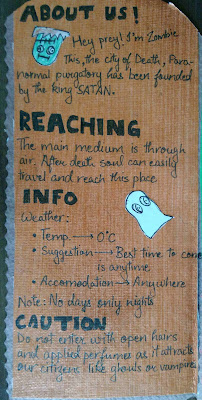 ABOUT US!
Hey prey! I'm Zombie
This, the city of Death, Para-
normal purgatory has been founded
by the king SATAN.
REACHING
The main medium is through
air. After death soul can easily
travel and reach this place
INFO
Weather:
• Temp. → 0°C
• Suggestion → Best time to come
is anytime
• Accomodation → Anywhere
Note: No days only nights
CAUTION
Do not enter with open hairs
and applied perfume as it attracts
our citizens like ghouls or vampire